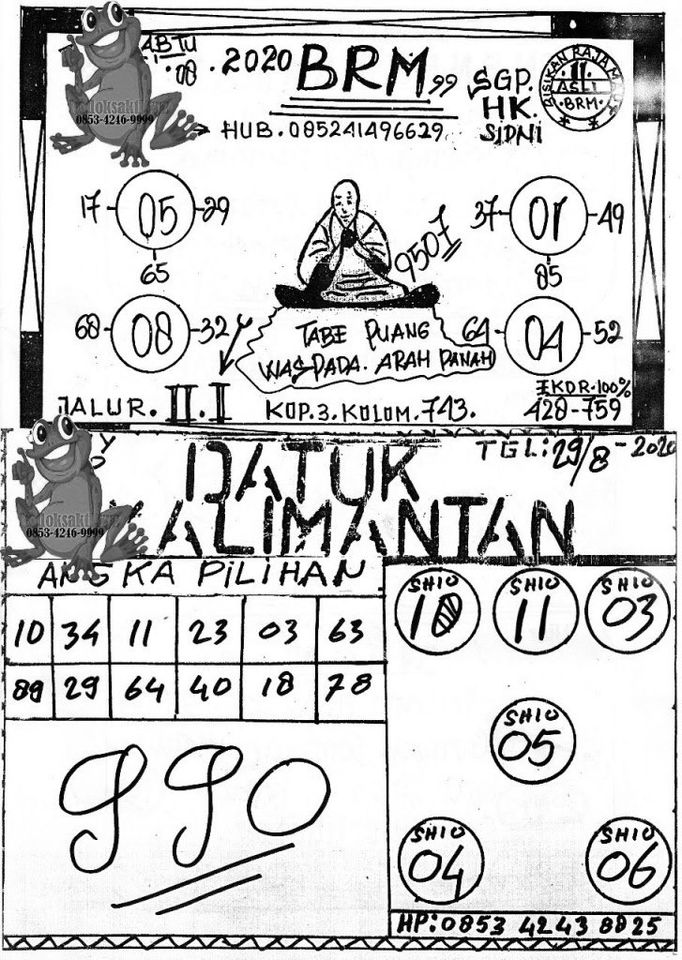 ABTU
.08.2020 BRM 99
SGP.
HK.
SIDNI
BISIKAN RAJA
11.
ASLI
·BRM·
0853-4246-9999
HUB.085241496629
17 05 29
65
37 01 49
85
9507
68 08 32
64 04 52
TABE PUANG
WASPADA. ARAH PANAH
JALUR. II. I
KOP.3.KOLOM.743.
EKOR.100%
428-759
TGL:29/8-2020
DATUK
KALIMANTAN
0853-4246-9999
ANGKA PILIHAN
10 34 11 23 03 63
89 29 64 40 18 78
990
SHIO 10
SHIO 11
SHIO 03
SHIO 05
SHIO 04
SHIO 06
HP:0853 4243 8825